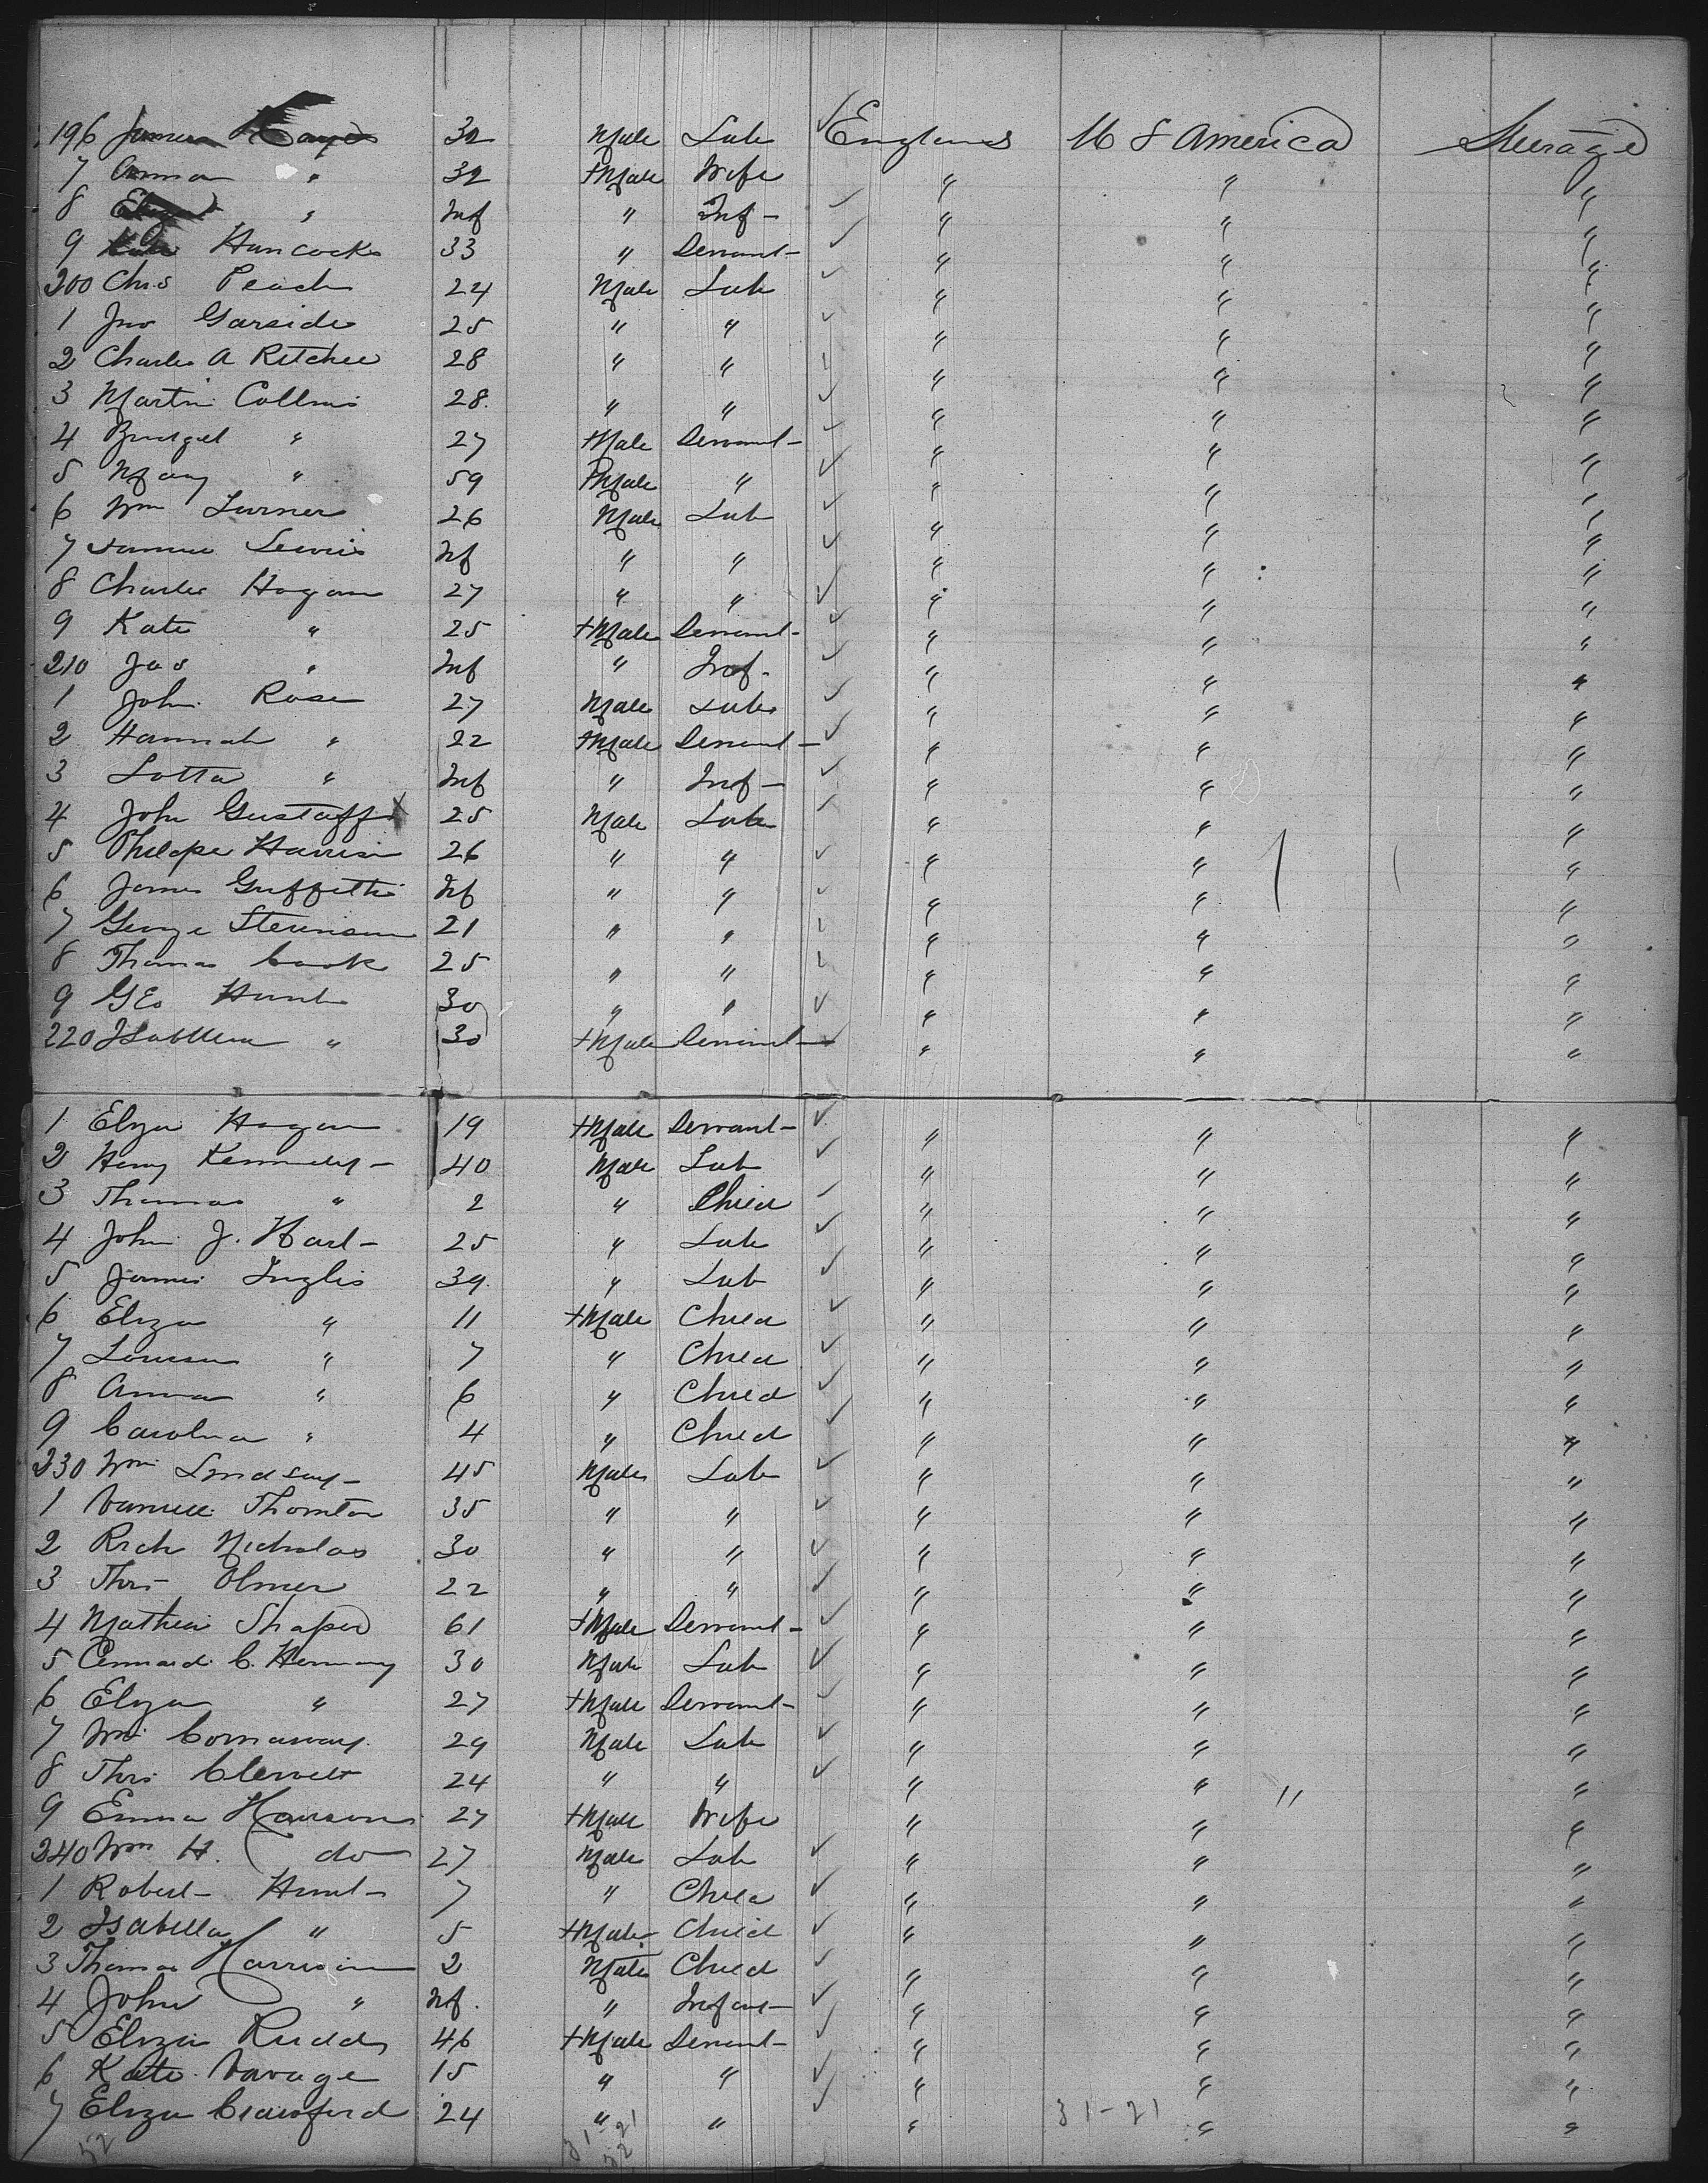 196 James Hayes 32 Male Lab England U S America Steerage
7 Anna " 32 +Male Wife " " "
8 " Inf " Inf - " " "
9 Kate Hancocks 33 " Servant - " " "
200 Chas Peach 24 Male Lab " " "
1 Jno Garside 25 " " " " "
2 Charles A Ritchie 28 " " " " "
3 Martin Collins 28. " " " " "
4 Bridget " 27 +Male Servant - " " "
5 Mary " 59 +Male " " " "
6 Wm Turner 26 Male Lab " " "
7 Lewis Inf " " " " "
8 Charles Hogan 27 " " " " "
9 Kate " 25 +Male Servant - " " "
210 Jas " Inf " Inf - " " "
1 John Rose 27 Male Lab " " "
2 Hannah " 22 +Male Servant - " " "
3 Lotta " Inf " Inf - " " "
4 John Gustaff 25 Male Lab " " "
5 Harrison 26 " " " " "
6 James Griffiths Inf " " " " "
7 George Stevenson 21 " " " " "
8 Thomas Cook 25 " " " " "
9 Geo Hunt 30 " " " " "
220 Isabella " 30 +Male Servant - " " "
1 Eliza Hogan 19 +Male Servant - " " "
2 Henry Kennedy - 40 Male Lab " " "
3 Thomas " 2 " Child " " "
4 John J. Hart - 25 " Lab " " "
5 James Inglis 39. " Lab " " "
6 Eliza " 11 +Male Child " " "
7 Louisa " 7 " Child " " "
8 Anna " 6 " Child " " "
9 Carolina " 4 " Child " " "
230 Wm Lindsay - 45 Male Lab " " "
1 Thornton 35 " " " " "
2 Rich Nicholas 30 " " " " "
3 Thos - Olmer 22 " " " " "
4 Mathew Shaper 61 +Male Servant - " " "
5 C. 30 Male Lab " " "
6 Eliza " 27 +Male Servant - " " "
7 Wm Cornaway. 29 Male Lab " " "
8 Thos 24 " " " " "
9 Emma Harrison 27 +Male Wife " " "
240 Wm H. do 27 Male Lab " " "
1 Robert - Hunt - 7 " Child " " "
2 Isabella " 5 +Male Child " " "
3 Thomas Harrison 2 Male Child " " "
4 John " Inf. " Infant - " " "
5 Eliza Rudd 46 +Male Servant - " " "
6 Kate Savage 15 " " " " "
7 Eliza Crawford 24 " " " " "
31-21
52 31-21
52